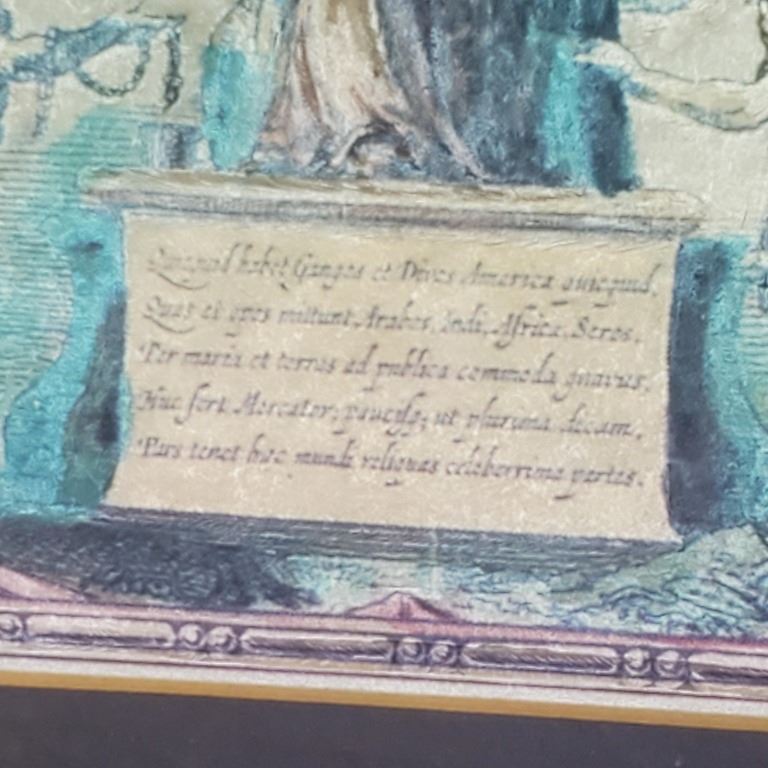 Quicquid habet Ganges et Dives America quicquid,
Quas et opes mittunt, Arabes, Indi, Africa, Seres,
Per maria et terras ad publica commoda gnavus,
Huc fert Mercator; paucisq; ut plurima dicam,
Pars tenet haec mundi reliquas celeberrima partes.